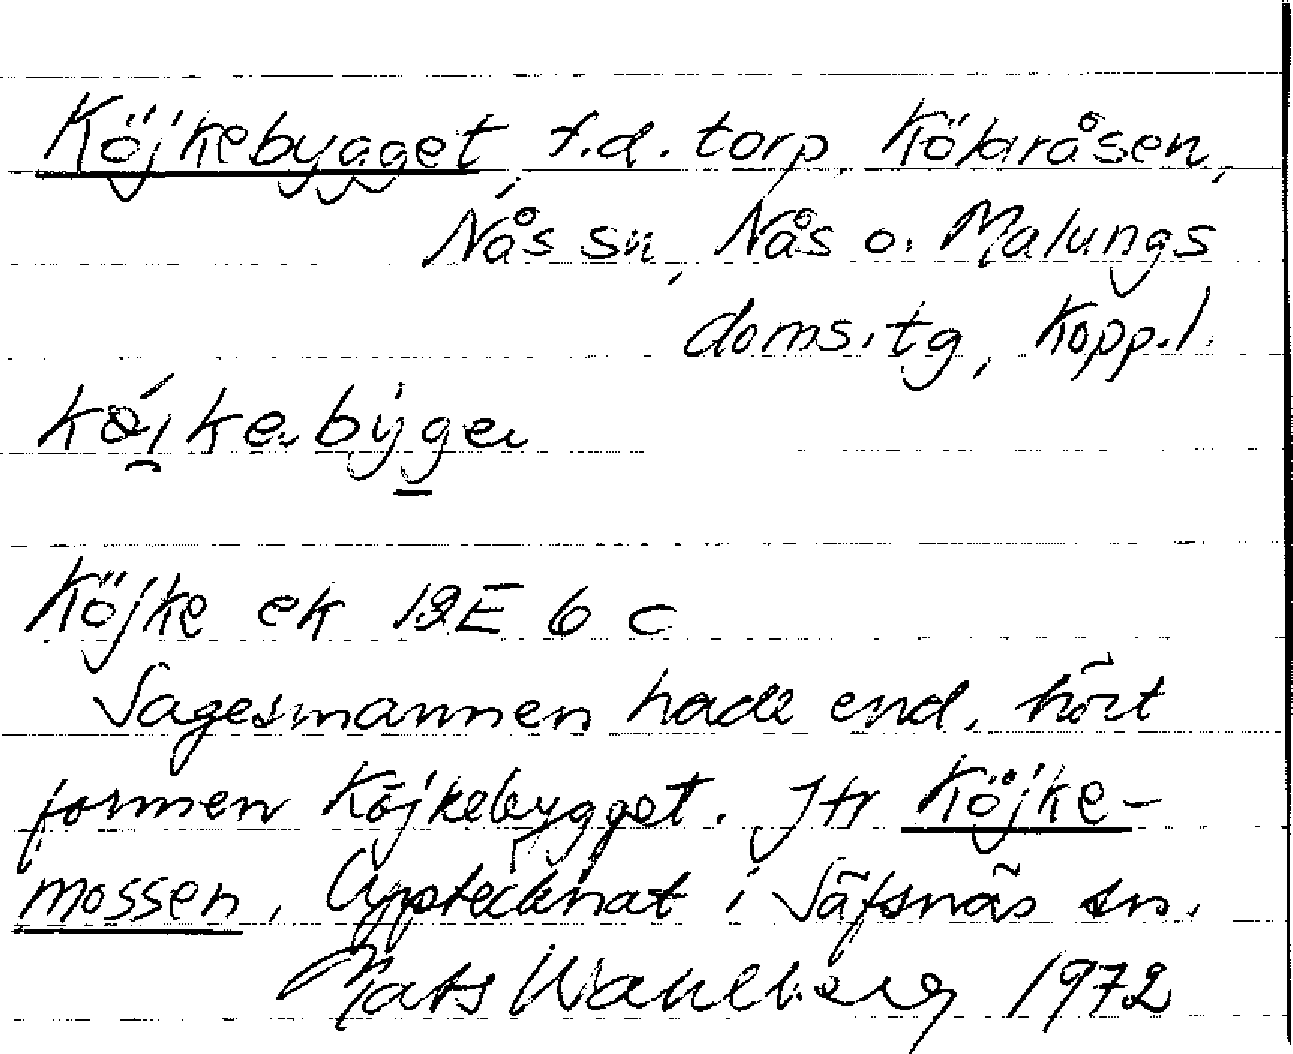 Köjkebygget, f.d. torp Kölaråsen,
Nås sn, Nås o. Malungs
doms.tg, Kopp.l.
Köjke ek 12E 6 c
Sagesmannen hade end. hört
formen Köjkebygget. Jfr Köjke-
mossen. Upptecknat i Säfsnäs sn.
Mats Wahlberg 1972